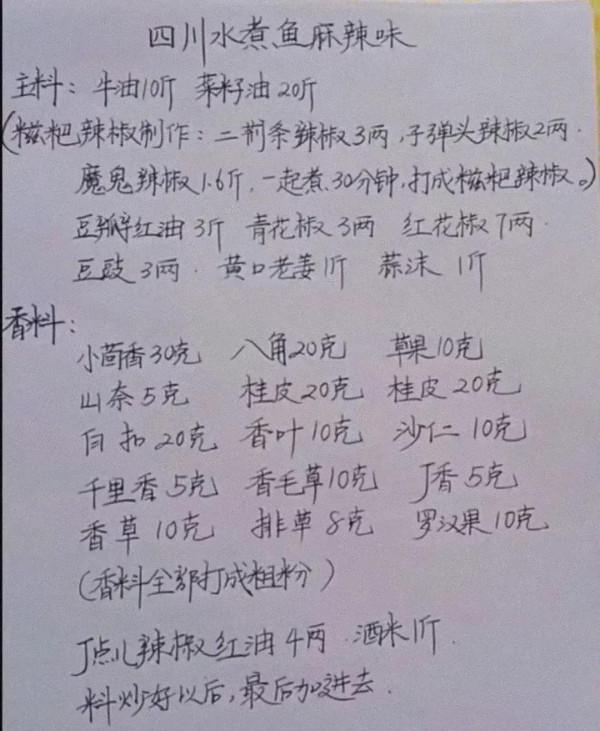 四川水煮鱼麻辣味
主料：牛油10斤 菜籽油20斤
(糍粑辣椒制作：二荆条辣椒3两，子弹头辣椒2两.
魔鬼辣椒1.6斤，一起煮30分钟，打成糍粑辣椒。)
豆瓣红油3斤 青花椒3两 红花椒7两.
豆豉3两. 黄口老姜1斤 蒜沫1斤
香料：
小茴香30克 八角20克 草果10克
山奈5克 桂皮20克 桂皮20克
白扣20克 香叶10克 沙仁10克
千里香5克 香毛草10克 丁香5克
香草10克 排草8克 罗汉果10克
(香料全部打成粗粉)
丁点儿辣椒红油4两. 酒米1斤.
料炒好以后，最后加进去.